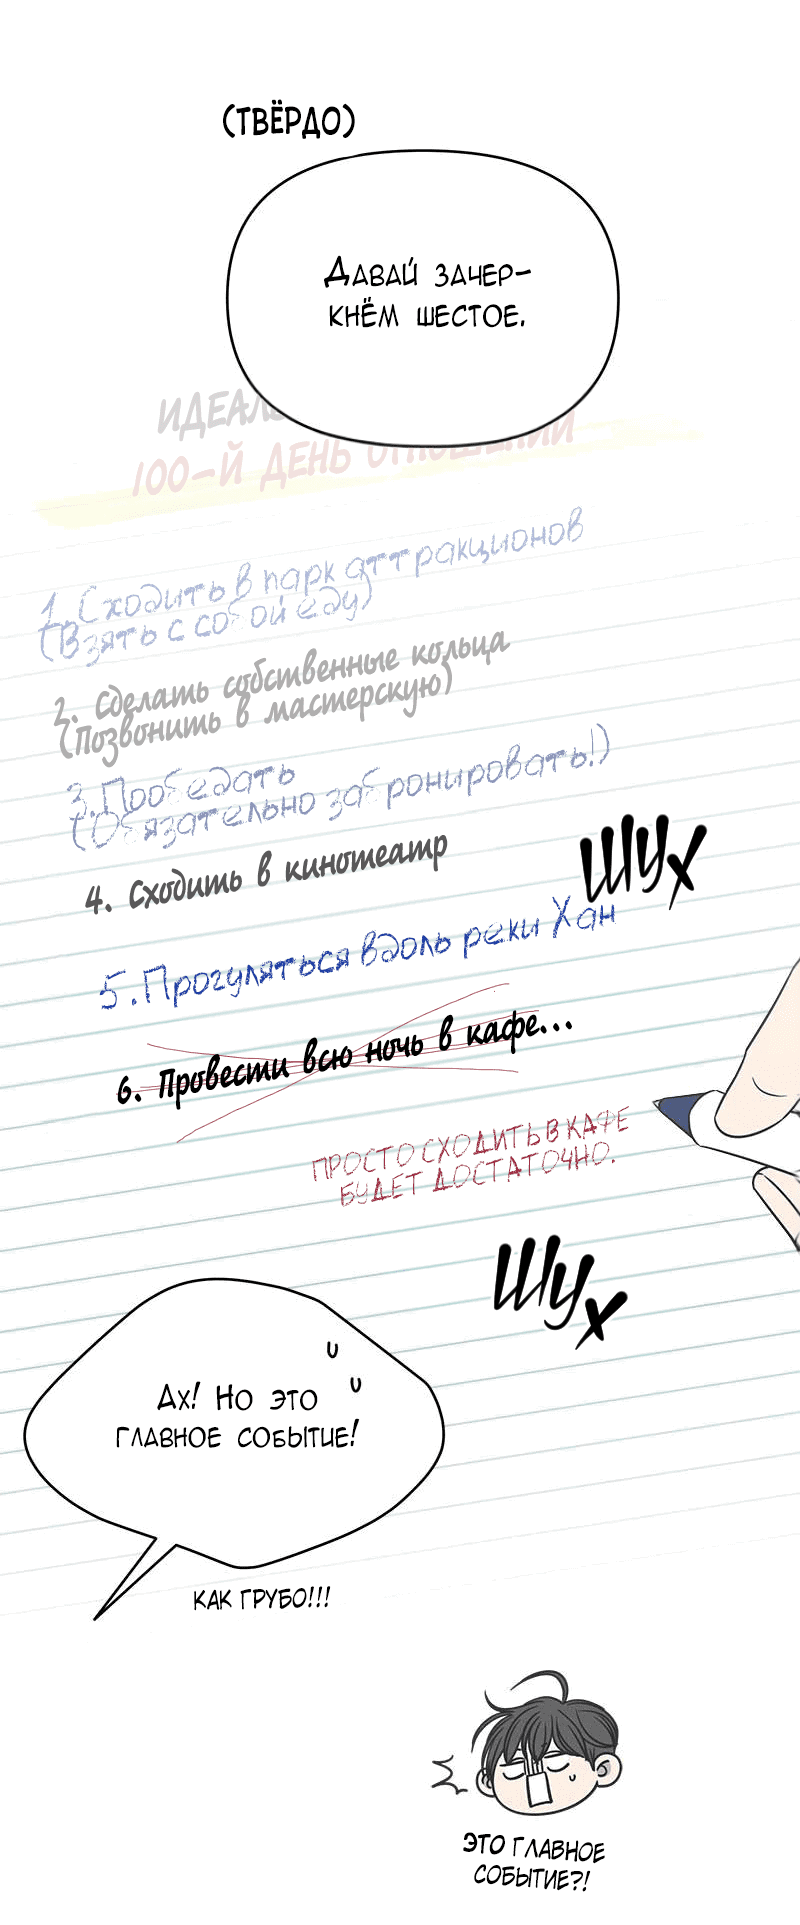 (ТВЁРДО)
ДАВАЙ ЗАЧЕР-
КНЁМ ШЕСТОЕ.
100-Й ДЕНЬ
1. Сходить в парк аттракционов
(Взять с собой еду)
2. Сделать собственные кольца
(Позвонить в мастерскую)
3. Пообедать
(Обязательно забронировать!)
4. Сходить в кинотеатр
ШУХ
5. Прогуляться вдоль реки Хан
6. Провести всю ночь в кафе...
ПРОСТО СХОДИТЬ В КАФЕ
БУДЕТ ДОСТАТОЧНО.
ШУХ
АХ! НО ЭТО
ГЛАВНОЕ СОБЫТИЕ!
КАК ГРУБО!!!
ЭТО ГЛАВНОЕ
СОБЫТИЕ?!